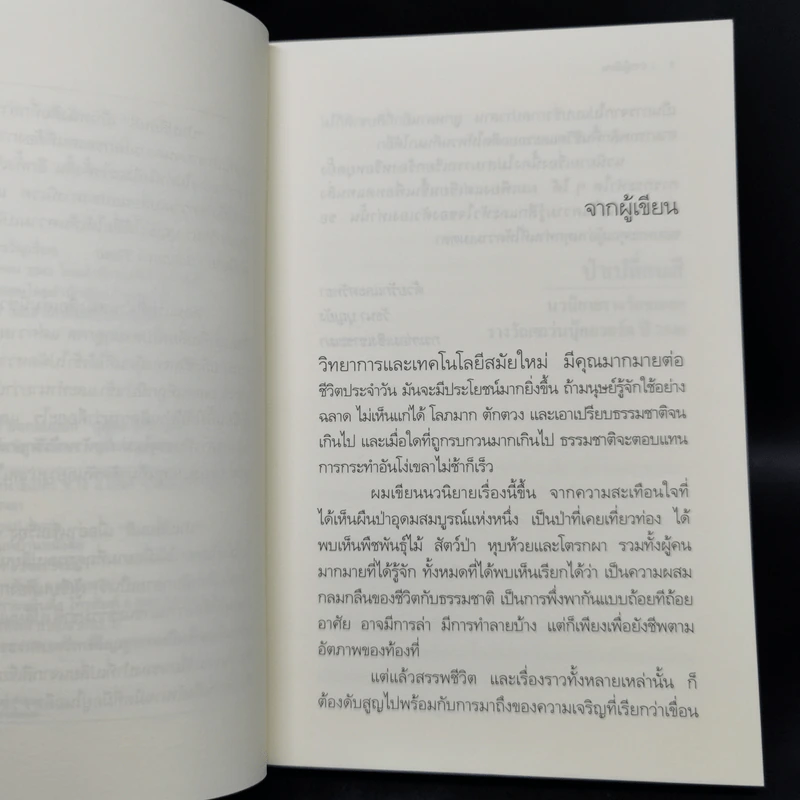 จากผู้เขียน
วิทยาการและเทคโนโลยีสมัยใหม่ มีคุณมากมายต่อ
ชีวิตประจำวัน มันจะมีประโยชน์มากยิ่งขึ้น ถ้ามนุษย์รู้จักใช้อย่าง
ฉลาด ไม่เห็นแก่ได้ โลภมาก ตักตวง และเอาเปรียบธรรมชาติจน
เกินไป และเมื่อใดที่ถูกรบกวนมากเกินไป ธรรมชาติจะตอบแทน
การกระทำอันโง่เขลาไม่ช้าก็เร็ว
ผมเขียนนวนิยายเรื่องนี้ขึ้น จากความสะเทือนใจที่
ได้เห็นผืนป่าอุดมสมบูรณ์แห่งหนึ่ง เป็นป่าที่เคยเที่ยวท่อง ได้
พบเห็นพืชพันธุ์ไม้ สัตว์ป่า หุบห้วยและโตรกผา รวมทั้งผู้คน
มากมายที่ได้รู้จัก ทั้งหมดที่ได้พบเห็นเรียกได้ว่า เป็นความผสม
กลมกลืนของชีวิตกับธรรมชาติ เป็นการพึ่งพากันแบบถ้อยทีถ้อย
อาศัย อาจมีการล่า มีการทำลายบ้าง แต่ก็เพียงเพื่อยังชีพตาม
อัตภาพของท้องที่
แต่แล้วสรรพชีวิต และเรื่องราวทั้งหลายเหล่านั้น ก็
ต้องดับสูญไปพร้อมกับการมาถึงของความเจริญที่เรียกว่าเขื่อน